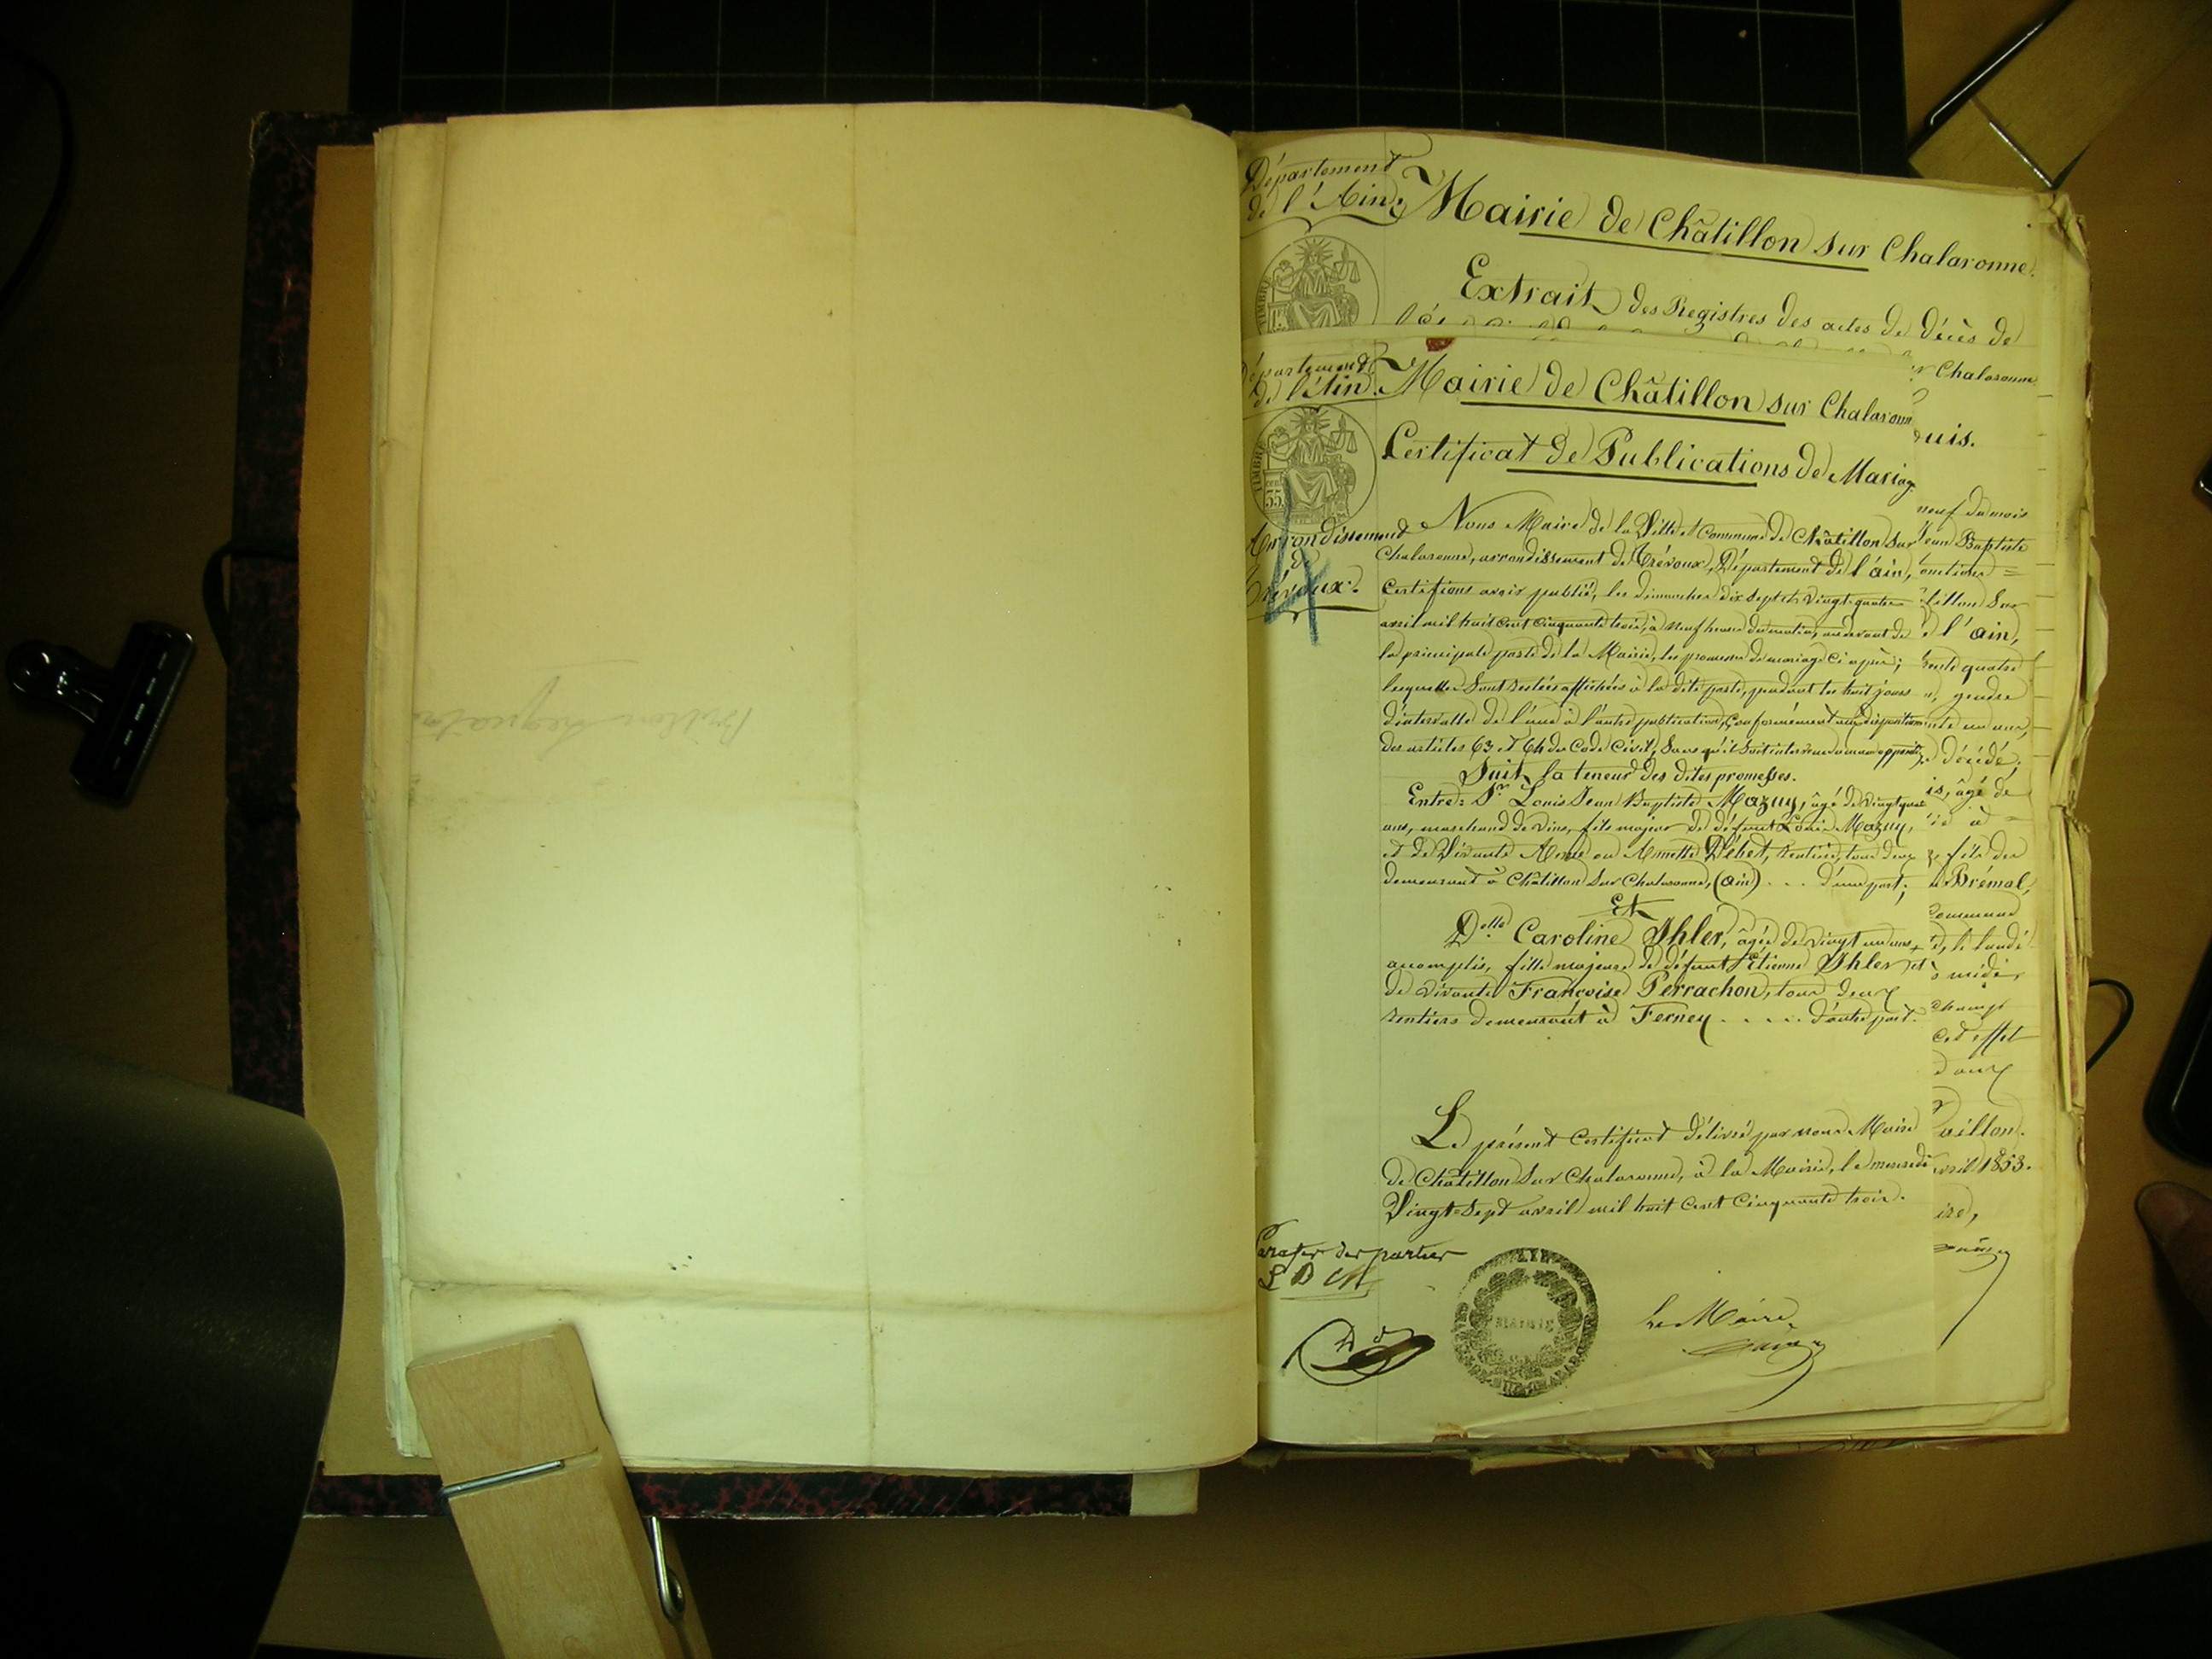 Département
de l'Ain.
Mairie de Châtillon sur Chalaronne.
Extrait des Registres des actes de Décès de
TIMBRE
Département
de l'Ain.
Mairie de Châtillon sur Chalaronn
r Chalaronne
uis.
Certificat de Publications de Mariag
TIMBRE
35
Arrondissement
de
Trévoux.
4
Nous Maire de la Ville et Commune de Châtillon sur
Chalaronne, arrondissement de Trévoux, Département de l'ain,
Certifions avoir publié, les dimanches dix sept et Vingt-quatre
avril mil huit cent cinquante trois, à neuf heures du matin, au devant de
la principale porte de la Mairie, les promesses de mariage ci après;
lesquelles Sont restées affichées à la dite porte, pendant les huit jours
d'intervalle de l'une à l'autre publication, Conformément aux dispositions
des articles 63 et 64 du Code Civil, Sans qu'il Soit intervenu aucune opposition
Suit la teneur des dites promesses.
Entre: Sr. Louis Jean Baptiste Mazuy, âgé de Vingt quat
ans, marchand de Vins, fils majeur de défunt Louis Mazuy,
et de Vivante Anne ou Annette Débet, rentière, tous deux
demeurant à Châtillon Sur Chalaronne, (ain) . . . d'une part;
Et
Delle Caroline Ihler, âgée de Vingt un ans
accomplis, fille majeure de défunt Etienne Ihler et
de Vivante Françoise Perrachon, tous deux
rentiers demeurant à Ferney . . . . . d'autre part.
Le présent Certificat délivré par nous Maire
de Châtillon Sur Chalaronne, à la Mairie, le mercredi
Vingt-Sept avril mil huit Cent Cinquante trois.
neuf du mois
Jean Baptiste
tillon Sur
l'ain,
quatre
gendre
décédé,
is, âgé de
fils de
Brémal,
Commune
le lundi
midi,
champ
cet effet
aillon.
vril 1853.
ire,
Parafes des parties
L B M
MAIRIE
Le Maire,